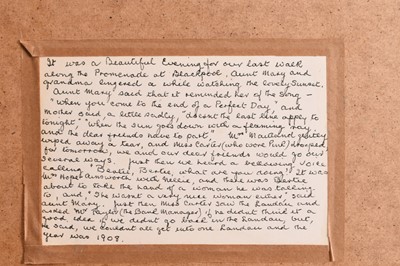 It was a Beautiful Evening for our last walk
along the Promenade at Blackpool, Aunt Mary and
grandma lingered a while watching the lovely Sunset.
Aunt Mary said that it reminded her of the song –
"when you come to the end of a Perfect Day," and
mother said a little sadly, "doesnt the last line apply to
tonight," "when the sun goes down with a flaming ray,
and the dear friends have to part". Mrs Maitland quietly
wiped away a tear, and Miss Carter (who wore Pink) dropped
for tomorrow, we and our dear friends would go our
several ways. Just then we heard a bellowing voice
calling "Bertie, Bertie, what are you doing". It was
Mrs Hope Ainsworth with Nellie, and there was Bertie
about to take the hand of a woman he was talking
to, and "She wasnt a very nice woman either" said
aunt Mary. Just then Miss Carter saw the Landau and
asked Mr Taylor (The Bank Manager) if he didnt think it a
good idea if we didnt go back in the Landau but,
he said, we couldnt all get into one Landau and the
year was 1908.